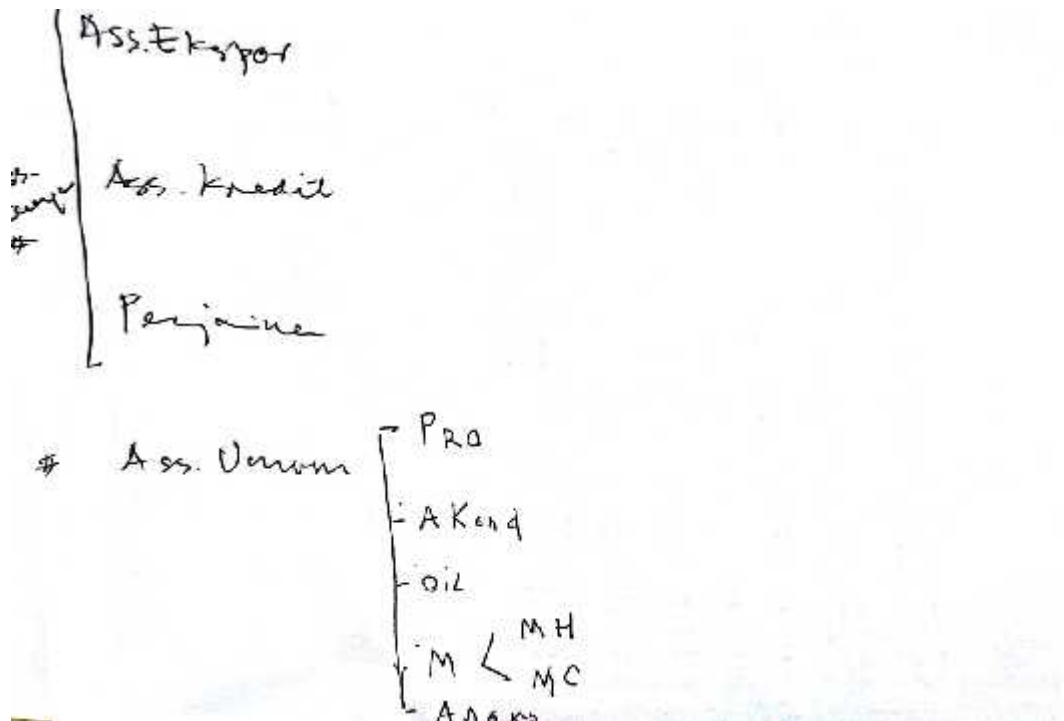 Ass. Ekspor
Ass. Kredit
#
Penjaminan
# Ass. Umum
- PRO
- AKend
- OIL
- M < MH
MC